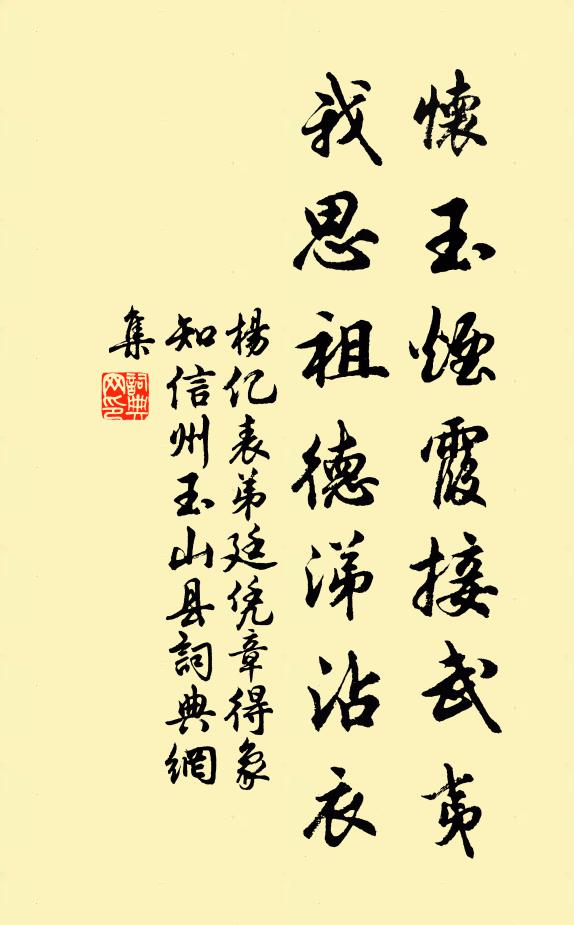 懷玉煙霞接武夷
我思祖德涕沾衣
楊億表弟廷凭章得象
知信州玉山县詞典網
集
詞典
网印